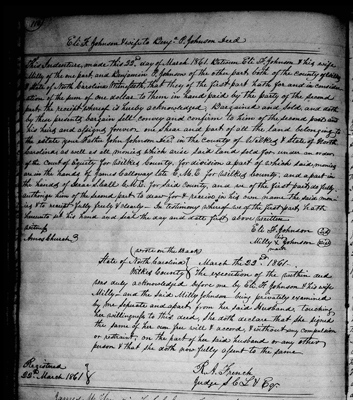 Eli F. Johnson & wife to Benjn. P. Johnson Deed
This Indenture, made this 22d day of March 1861 Between Eli F. Johnson & his wife
Milly of the one part, and Benjamin P. Johnson of the other part both of the county of Wilkes
& State of North Carolina Witnesseth, that they of the first part hath for and in consider-
ation of the sum of one dollar to them in hand paid by the party of the second
part the receipt whereof is hereby acknowledged, Bargained and Sold, and doth
by these presents bargain sell convey and confirm to him of the second part and
his heirs and assigns forever one shear and part of all the land belonging to
the estate your Father John Johnson decd. in the County of Wilkes & State of North
Carolina as well as all monies which said land sold for under an order
of the Court of Equity for Wilkes County, for division a part of which said money
is in the hands of James Calloway late C.M.E. for Wilkes County, and a part in
the hands of Isaac S. Call C.M.E. for Said County, and we of the first part do fully
authorize him of the second part to
in his own name the said
as the first part, hath
hereunto set his hand and seal the day and date first above written
Eli F. Johnson (Seal)
Amos Church
Milly Johnson (Seal)
mark
(wrote on the Back)
State of North Carolina March the 22d. 1861.
Wilkes County the execution of the within deed
was duly acknowledged before me by Eli F. Johnson & his wife
Milly and the Said Milly Johnson being privately examined
by me seperate and apart from her said Husband touching
her willingness to this deed, She doth declare that she signed
the same of her own free will & accord, & without any compulsion
or restraint, on the part of her said husband or any other
person & that she doth now fully assent to the same
Registered
22d March 1861
R. S. French
Judge S.C.L. & Eq.